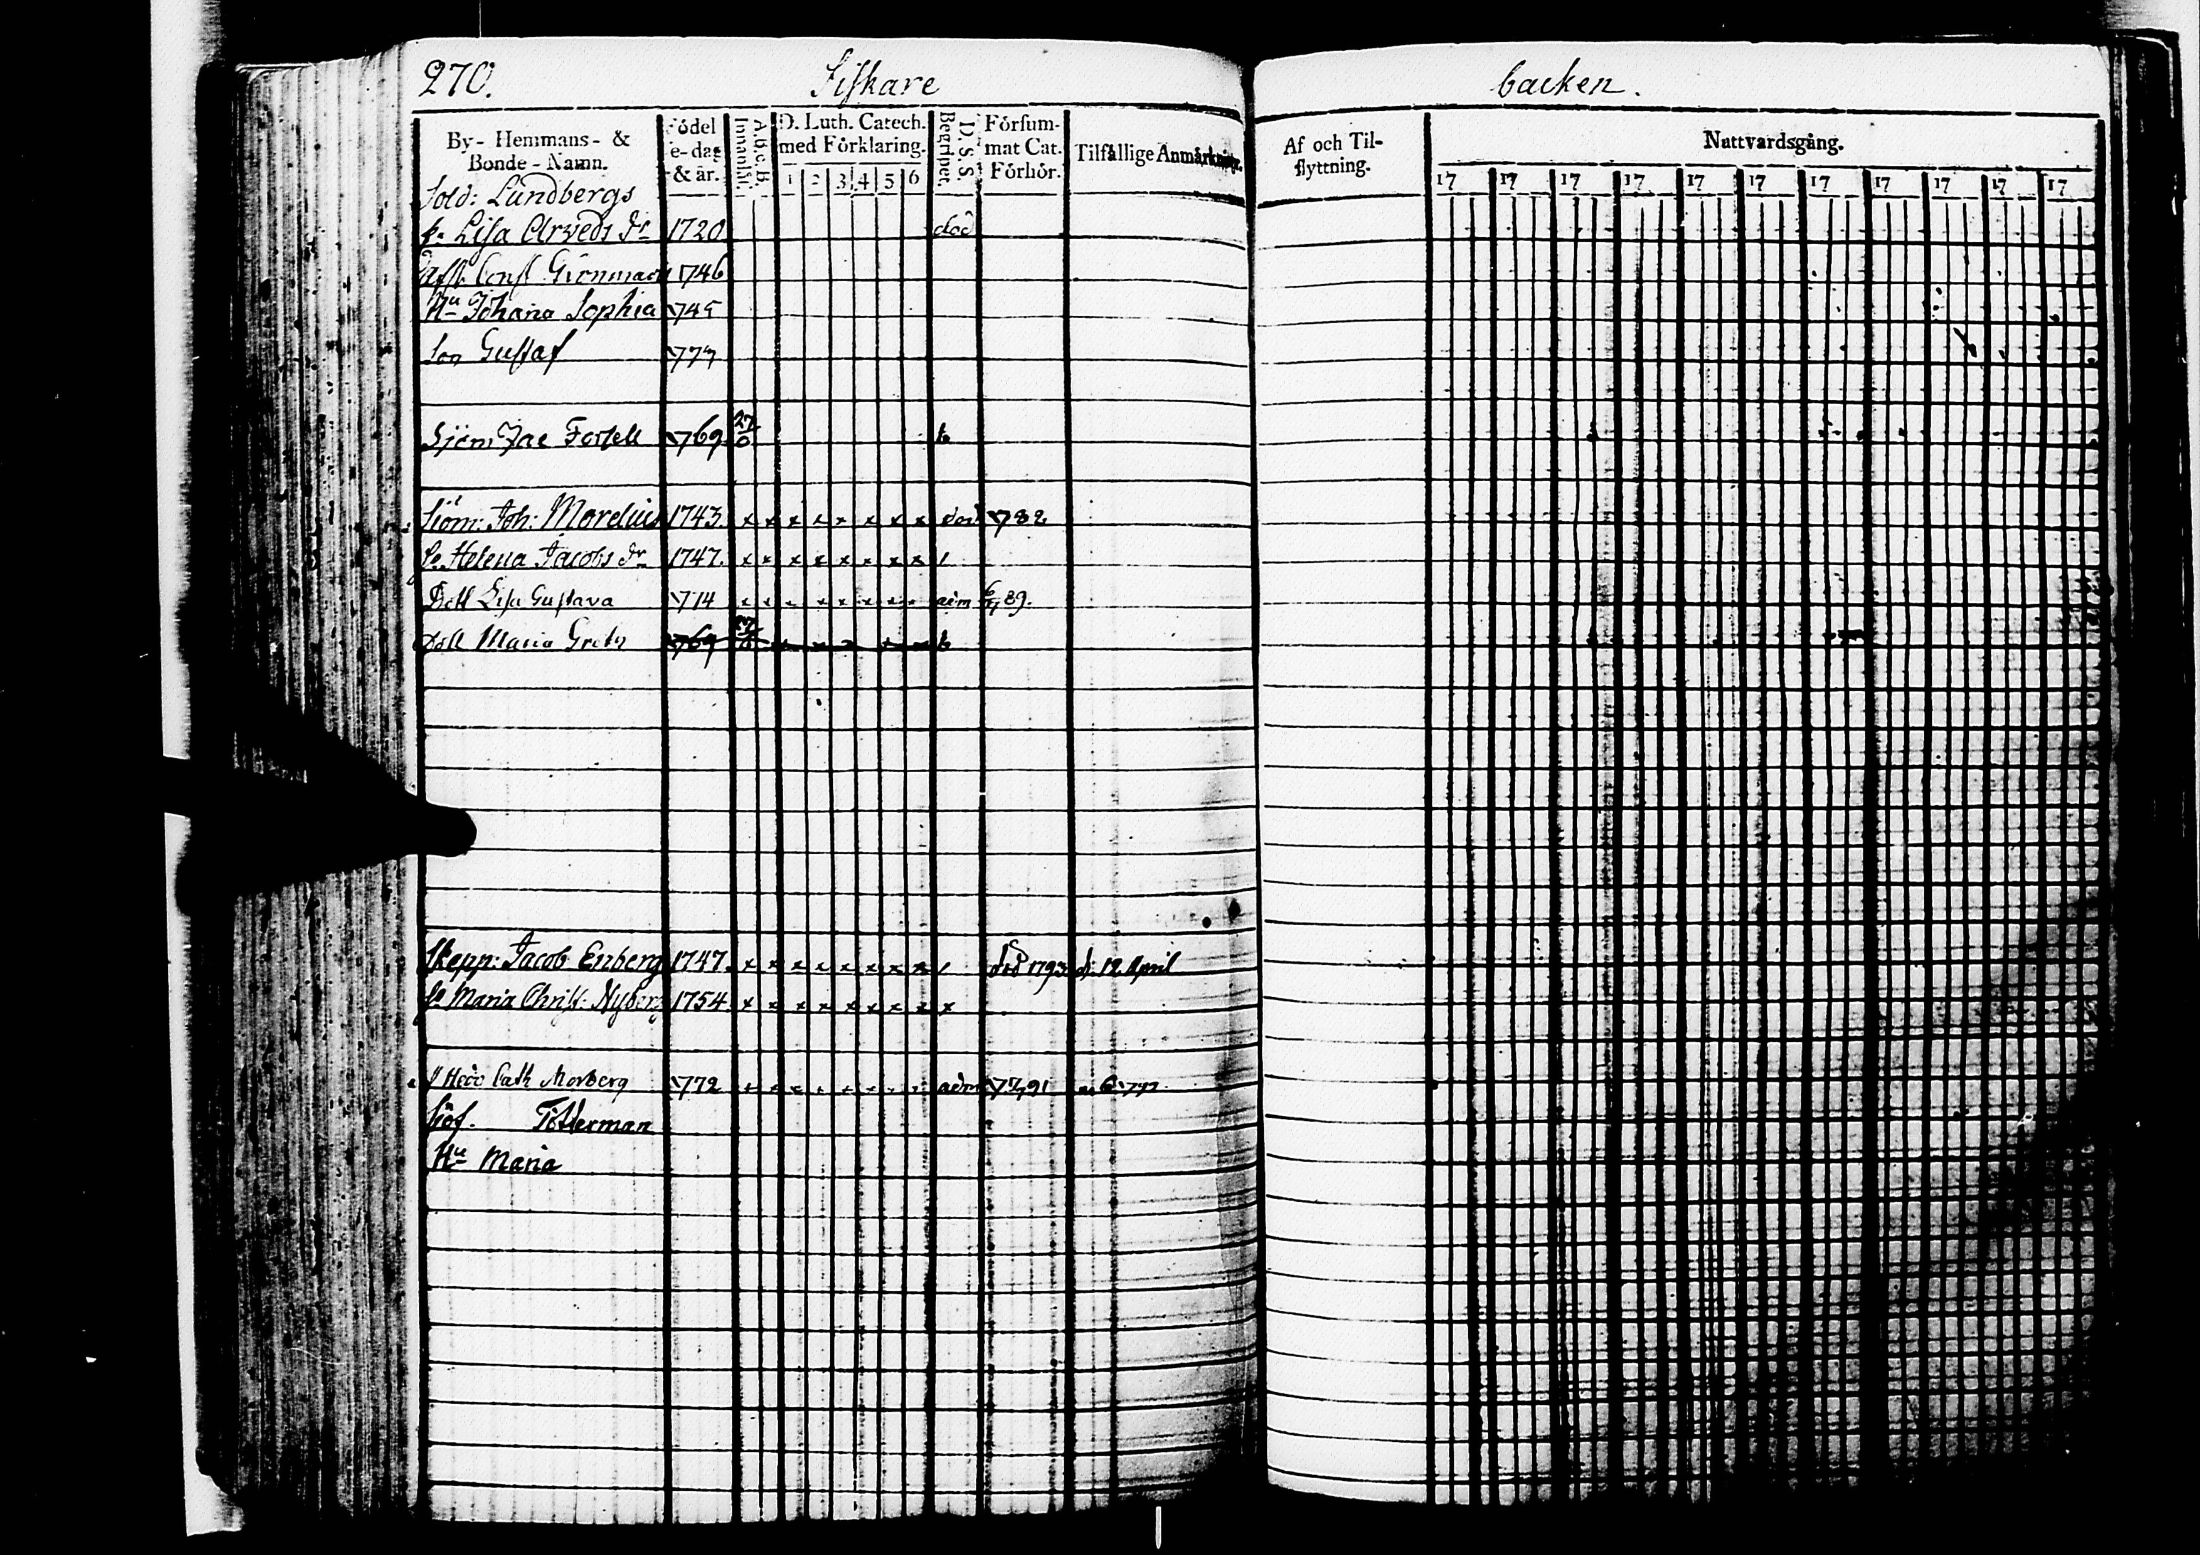 270. Fiskare backen.
By- Hemmans- & Bonde-Namn. Födelse-dag & år. A.b.c.B. Innanläs. D. Luth. Catech. med Förklaring. 1 2 3 4 5 6 D.S.S. Begripet. Försummat Cat. Förhör. Tilfällige Anmärkning. Af och Tilflyttning. Nattvardsgång.
17 17 17 17 17 17 17 17 17 17 17
Sold: Lundbergs
Lisa Arveds dr 1720 död
1746
Hu Johana Sophia
Son Gustaf 777
Sjöm Jac Forsell 769 27
Siöm: Joh: Morelius 1743. x x x x x x x x död 782
Helena Jacobs dr 1747. x x x x x x x x /
Dott Lisa Gustava adm 89.
Dott Maria Greta 769
Skepp: Jacob Enberg 1747. x x x x x x x x / död 1793 d: 12 April
Maria Christ: Nyberg 1754. x x x x x x x x x
Cath Morberg 772 adm
Tötterman
Hu Maria